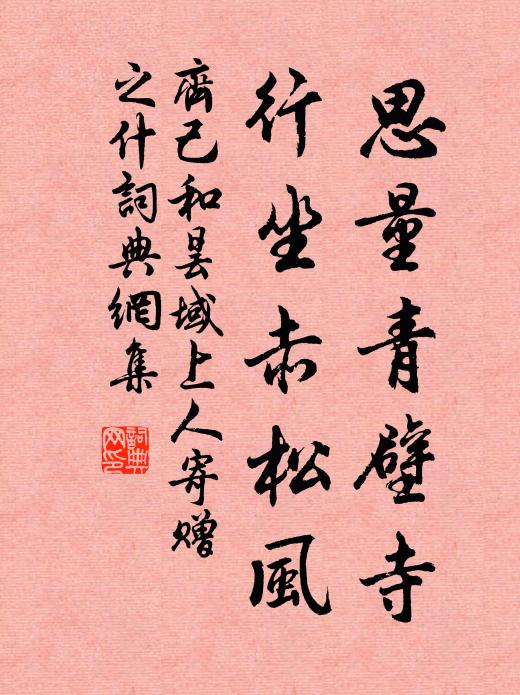 思量青壁寺
行坐赤松風
齊己和曇域上人寄贈
之什詞典網集
詞典
网印